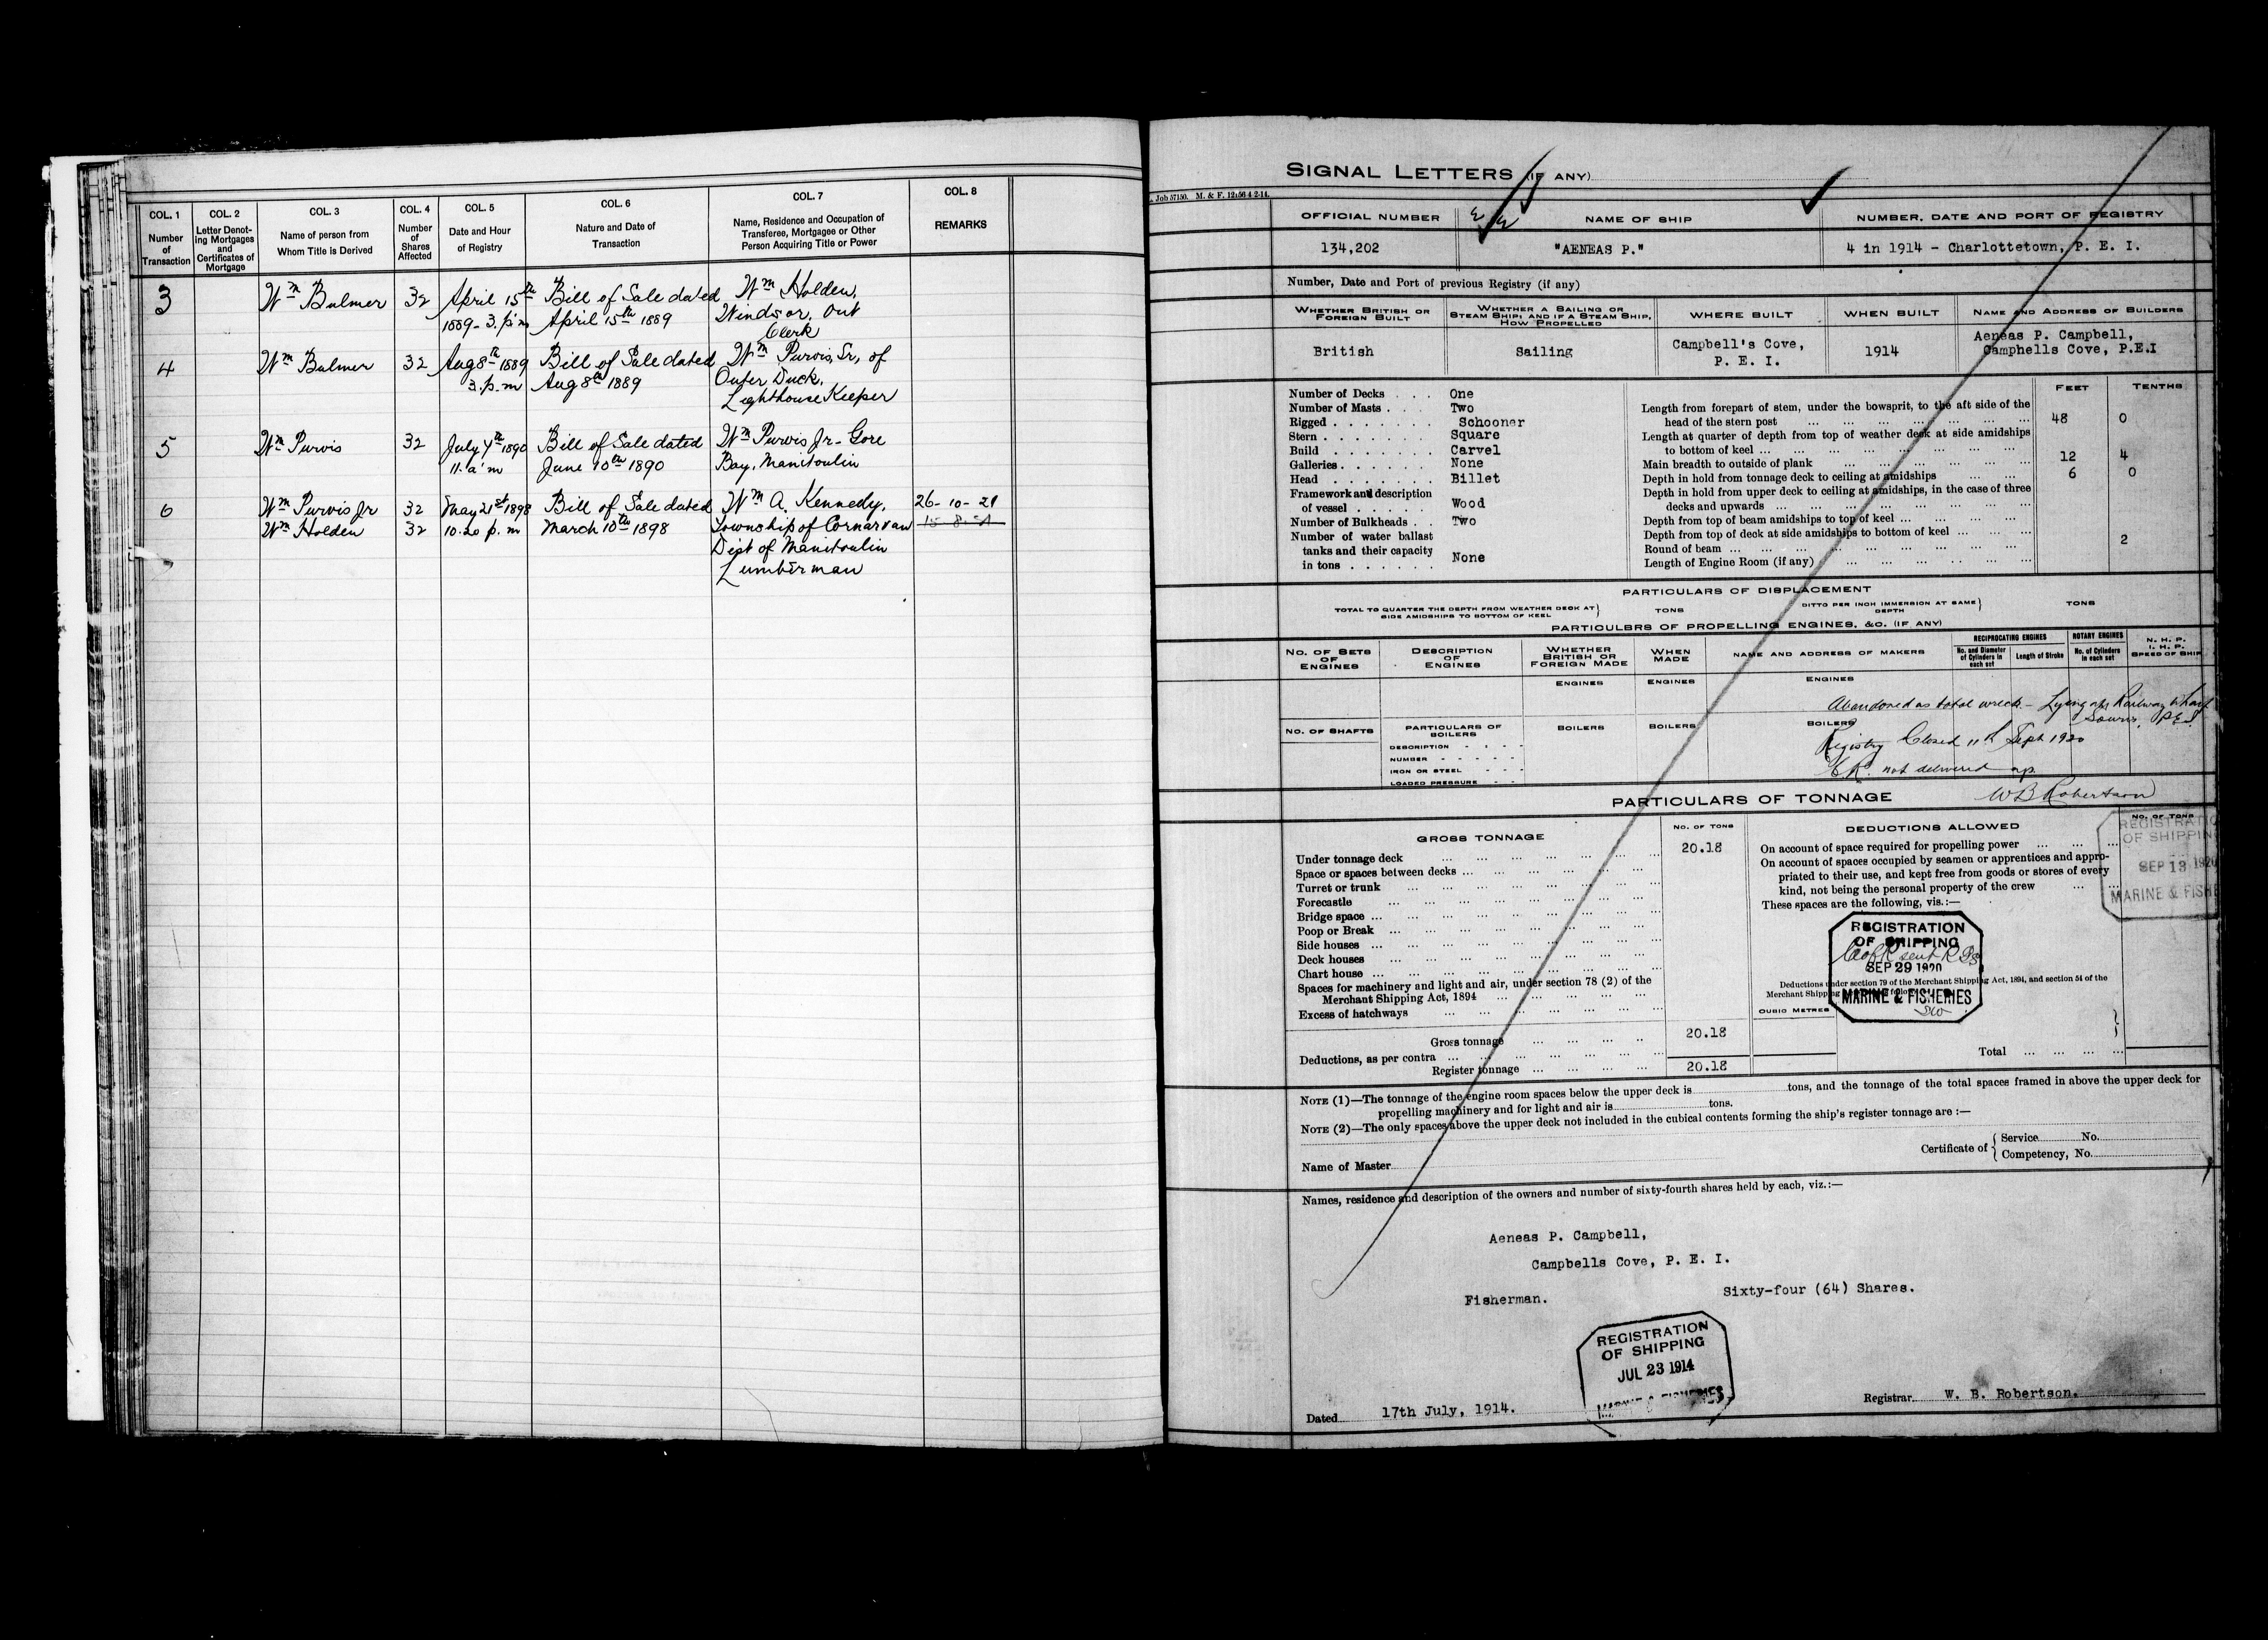 COL. 1
Number
of
Transaction
COL. 2
Letter Denot-
ing Mortgages
and
Certificates of
Mortgage
COL. 3
Name of person from
Whom Title is Derived
COL. 4
Number
of
Shares
Affected
COL. 5
Date and Hour
of Registry
COL. 6
Nature and Date of
Transaction
COL. 7
Name, Residence and Occupation of
Transferee, Mortgagee or Other
Person Acquiring Title or Power
COL. 8
REMARKS
3 Wm Bulmer 32 April 15th Bill of Sale dated Wm Holden,
1889-3. p.m April 15th 1889 Windsor, Ont
Clerk
4 Wm Bulmer 32 Aug 8th 1889 Bill of Sale dated Wm Purvis, Sr, of
3. p.m Aug 8th 1889 Outer Duck,
Lighthouse Keeper
5 Wm Purvis 32 July 4th 1890 Bill of Sale dated Wm Purvis Jr - Gore
11. a'm June 10th 1890 Bay, Manitoulin
6 Wm Purvis Jr 32 May 21st 1898 Bill of Sale dated Wm A. Kennedy, 26-10-21
Wm Holden 32 10.20 p.m March 10th 1898 Township of Cornarvan
Dist of Manitoulin
Lumberman
SIGNAL LETTERS (IF ANY)
Job 57150. M. & F. 12:56 4-2-14.
OFFICIAL NUMBER NAME OF SHIP NUMBER, DATE AND PORT OF REGISTRY
134,202 "AENEAS P." 4 in 1914 - Charlottetown, P. E. I.
Number, Date and Port of previous Registry (if any)
WHETHER BRITISH OR
FOREIGN BUILT
WHETHER A SAILING OR
STEAM SHIP; AND IF A STEAM SHIP,
HOW PROPELLED
WHERE BUILT
WHEN BUILT
NAME AND ADDRESS OF BUILDERS
British
Sailing
Campbell's Cove,
P. E. I.
1914
Aeneas P. Campbell,
Campbells Cove, P.E.I
FEET TENTHS
Number of Decks . . . One
Number of Masts . . . Two
Rigged . . . . . . . Schooner
Stern . . . . . . . . Square
Build . . . . . . . . Carvel
Galleries . . . . . . None
Head . . . . . . . Billet
Framework and description
of vessel . . . . . Wood
Number of Bulkheads . . Two
Number of water ballast
tanks and their capacity
in tons . . . . . . None
Length from forepart of stem, under the bowsprit, to the aft side of the
head of the stern post 48 0
Length at quarter of depth from top of weather deck at side amidships
to bottom of keel
Main breadth to outside of plank 12 4
Depth in hold from tonnage deck to ceiling at amidships 6 0
Depth in hold from upper deck to ceiling at amidships, in the case of three
decks and upwards
Depth from top of beam amidships to top of keel
Depth from top of deck at side amidships to bottom of keel
Round of beam 2
Length of Engine Room (if any)
PARTICULARS OF DISPLACEMENT
TOTAL TO QUARTER THE DEPTH FROM WEATHER DECK AT
SIDE AMIDSHIPS TO BOTTOM OF KEEL } TONS
DITTO PER INCH IMMERSION AT SAME
DEPTH } TONS
PARTICULBRS OF PROPELLING ENGINES, &C. (IF ANY)
NO. OF SETS
OF
ENGINES
DESCRIPTION
OF
ENGINES
WHETHER
BRITISH OR
FOREIGN MADE
WHEN
MADE
NAME AND ADDRESS OF MAKERS
RECIPROCATING ENGINES
No. and Diameter
of Cylinders in
each set
Length of Stroke
ROTARY ENGINES
No. of Cylinders
in each set
N. H. P.
I. H. P.
SPEED OF SHIP
ENGINES ENGINES ENGINES
Abandoned as total wreck - Lying at Railway Wharf
Souris, P.E.I.
NO. OF SHAFTS
PARTICULARS OF
BOILERS
BOILERS BOILERS BOILERS
DESCRIPTION
NUMBER
IRON OR STEEL
LOADED PRESSURE
Registry Closed 11th Sept 1920
C.R. not delivered up.
W B Robertson
PARTICULARS OF TONNAGE
GROSS TONNAGE NO. OF TONS DEDUCTIONS ALLOWED NO. OF TONS
Under tonnage deck 20.18
Space or spaces between decks
Turret or trunk
Forecastle
Bridge space
Poop or Break
Side houses
Deck houses
Chart house
Spaces for machinery and light and air, under section 78 (2) of the
Merchant Shipping Act, 1894
Excess of hatchways
Gross tonnage 20.18
Deductions, as per contra
Register tonnage 20.18
On account of space required for propelling power
On account of spaces occupied by seamen or apprentices and appro-
priated to their use, and kept free from goods or stores of every
kind, not being the personal property of the crew
These spaces are the following, vis.:—
REGISTRATIO
OF SHIPPIN
SEP 13 1920
MARINE & FISHE
REGISTRATION
OF SHIPPING
C of R sent R.G.
SEP 29 1920
MARINE & FISHERIES
Deductions under section 79 of the Merchant Shipping Act, 1894, and section 54 of the
Merchant Shipping
CUBIC METRES
Total
NOTE (1)—The tonnage of the engine room spaces below the upper deck is tons, and the tonnage of the total spaces framed in above the upper deck for
propelling machinery and for light and air is tons.
NOTE (2)—The only spaces above the upper deck not included in the cubical contents forming the ship's register tonnage are :—
Name of Master
Certificate of { Service No.
Competency, No.
Names, residence and description of the owners and number of sixty-fourth shares held by each, viz.:—
Aeneas P. Campbell,
Campbells Cove, P. E. I.
Fisherman. Sixty-four (64) Shares.
REGISTRATION
OF SHIPPING
JUL 23 1914
MARINE & FISHERIES
Dated 17th July, 1914.
Registrar W. B. Robertson.